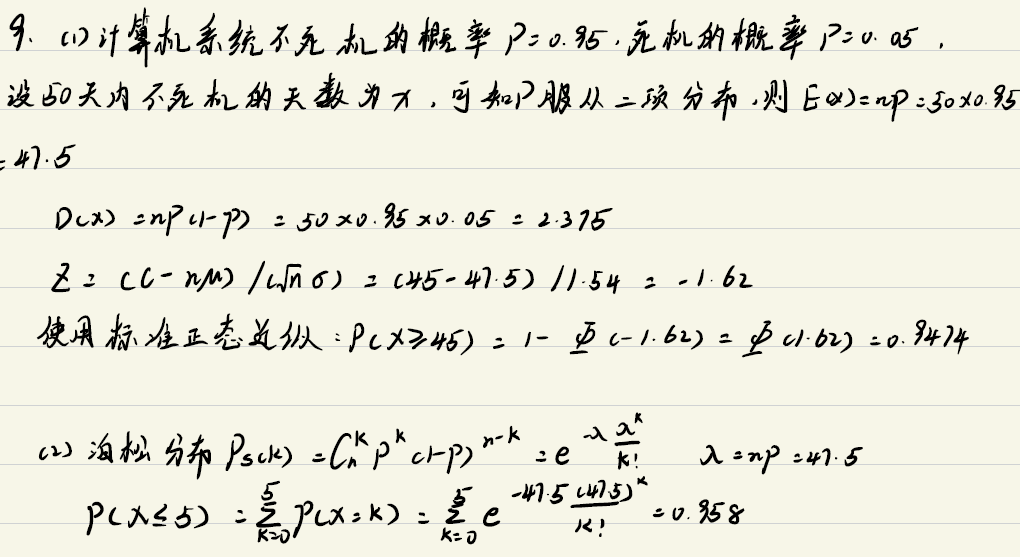 9. (1) 计算机系统不死机的概率 P=0.95, 死机的概率 P=0.05,
设50天内不死机的天数为x, 可知P服从二项分布, 则 E(x)=np=50×0.95
=47.5
D(x) =np(1-p) = 50×0.95×0.05 = 2.375
Z = (C-nμ) /(√n σ) = (45-47.5) /1.54 = -1.62
使用标准正态近似: P(X≥45) = 1- Φ(-1.62) = Φ(1.62) =0.9474
(2) 泊松分布 Ps(k) = C_n^k p^k (1-p)^{n-k} = e^{-λ} λ^k/k! λ=np=47.5
P(X≤5) = ∑_{k=0}^{5} P(X=k) = ∑_{k=0}^{5} e^{-47.5} (47.5)^k/k! =0.958